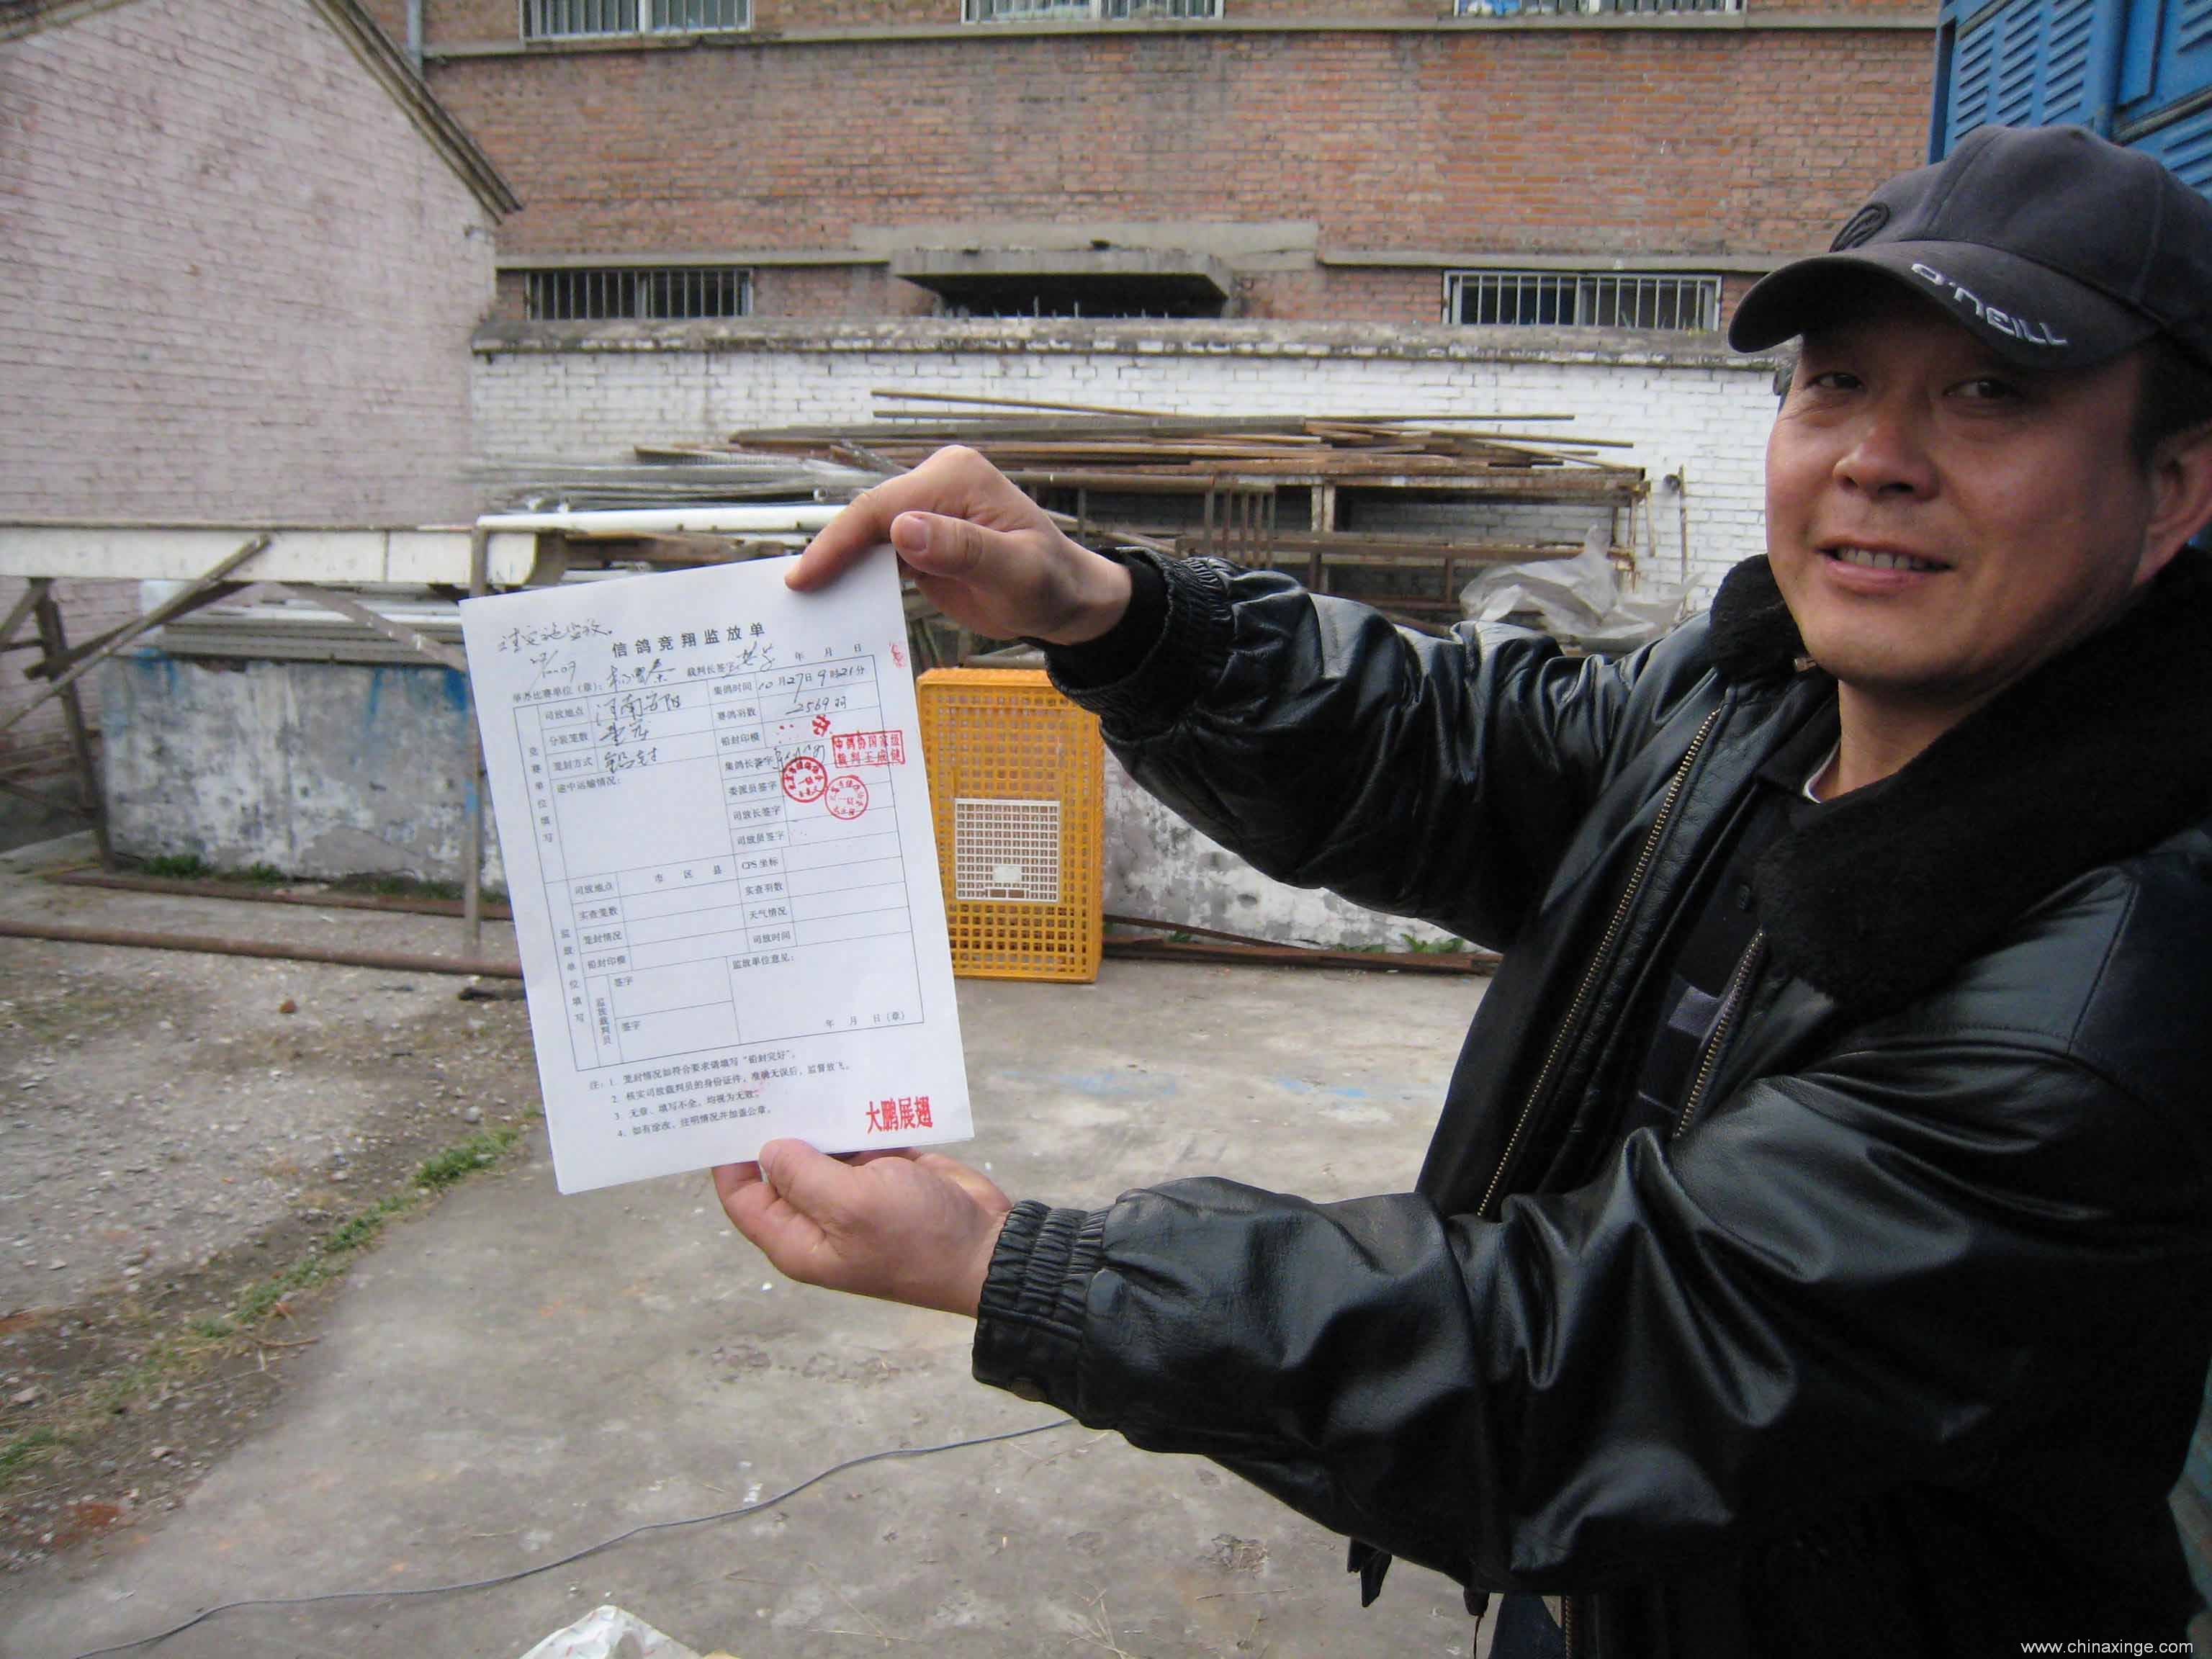 O'NEILL
信鸽竞翔监放单
举办比赛单位（章）： 裁判长签字 年 月 日
竞赛单位填写
司放地点 河南安阳 集鸽时间 10月27日9时21分
分装笼数 赛鸽羽数 2569羽
笼封方式 铅封 铅封印模
途中运输情况： 集鸽长签字
中鸽协国家级
裁判王成健
委派员签字
司放长签字
司放员签字
监放单位填写
司放地点 市 区 县 CPS 坐标
实查笼数 实查羽数
笼封情况 天气情况
铅封印模 司放时间
监放裁判员 签字 监放单位意见：
签字
年 月 日（章）
注：1. 笼封情况如符合要求请填写“铅封完好”。
2. 核实司放裁判员的身份证件，准确无误后，监督放飞。
3. 无章、填写不全，均视为无效。
4. 如有涂改，注明情况并加盖公章。
大鹏展翅
www.chinaxinge.com